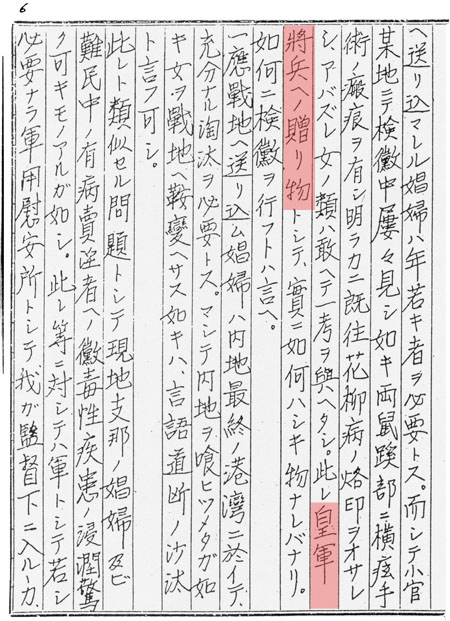 6
ヘ送リ込マレル娼婦ハ年若キ者ヲ必要トス。而シテ小官
某地ニテ検黴中屡々見シ如キ両鼠蹊部ニ横痃手
術ノ瘢痕ヲ有シ明ラカニ既往花柳病ノ烙印ヲオサレ
シアバズレ女ノ類ハ敢ヘテ一考ヲ與ヘタシ。此レ皇軍
將兵ヘノ贈リ物トシテ、實ニ如何ハシキ物ナレバナリ。
如何ニ検黴ヲ行フトハ言ヘ。
一應戰地ヘ送リ込ム娼婦ハ内地最終ノ港湾ニ於イテ、
充分ナル淘汰ヲ必要トス。マシテ内地ヲ喰ヒツメタガ如
キ女ヲ戰地ヘ鞍變ヘサス如キハ、言語道断ノ沙汰
ト言フ可シ。
此レト類似セル問題トシテ現地支那ノ娼婦及ビ
難民中ノ有病賣淫者ヘノ黴毒性疾患ノ浸潤驚
ク可キモノアルガ如シ。此レ等ニ対シテハ軍トシテ若シ
必要ナラ軍用慰安所トシテ我ガ監督下ニ入ルーカ、